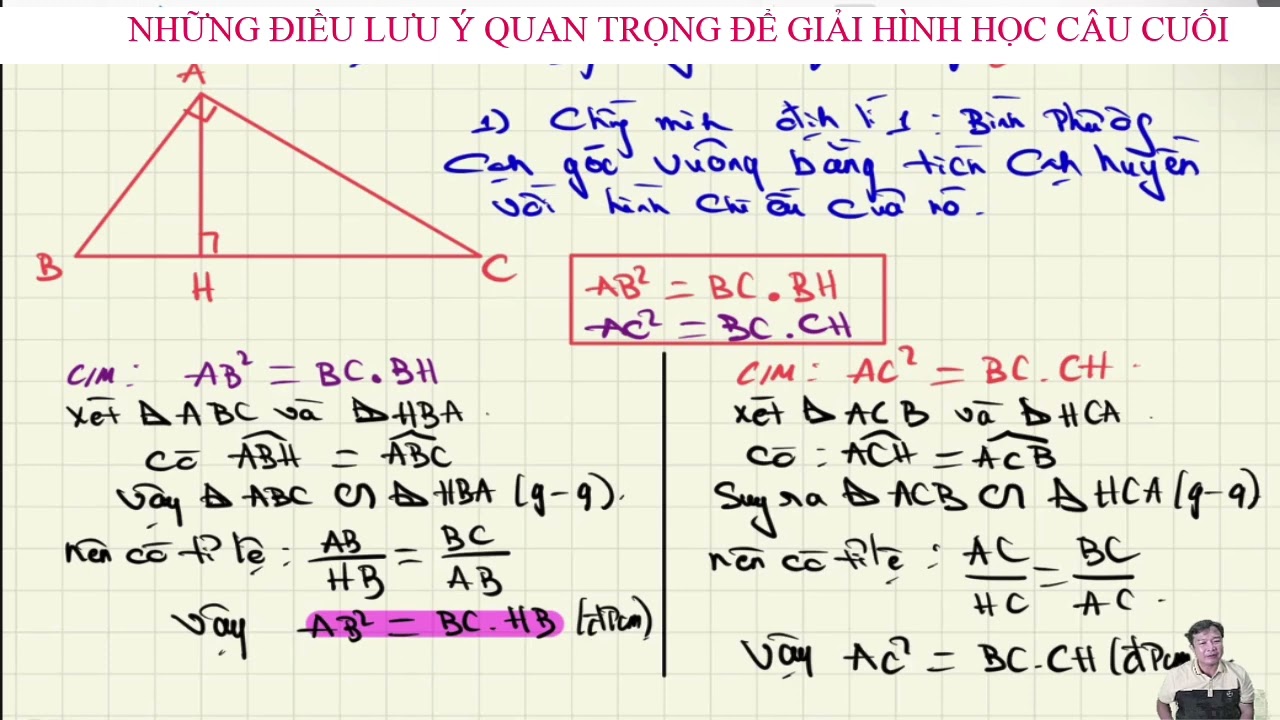 NHỮNG ĐIỀU LƯU Ý QUAN TRỌNG ĐỂ GIẢI HÌNH HỌC CÂU CUỐI
A
B
H
C
1) Chứng minh định lí 1 : Bình Phương
Cạnh góc vuông bằng tích Cạnh huyền
với hình chiếu của nó.
AB² = BC.BH
AC² = BC.CH
C/M : AB² = BC.BH
xét Δ ABC và Δ HBA
có ABH = ABC
Vậy Δ ABC ∽ Δ HBA (g-g).
nên có tỉ lệ : AB/HB = BC/AB
Vậy AB² = BC.HB (đpcm)
C/M : AC² = BC.CH
xét Δ ACB và Δ HCA
có : ACH = ACB
Suy ra Δ ACB ∽ Δ HCA (g-g)
nên có tỉ lệ : AC/HC = BC/AC
Vậy AC² = BC.CH (đpcm